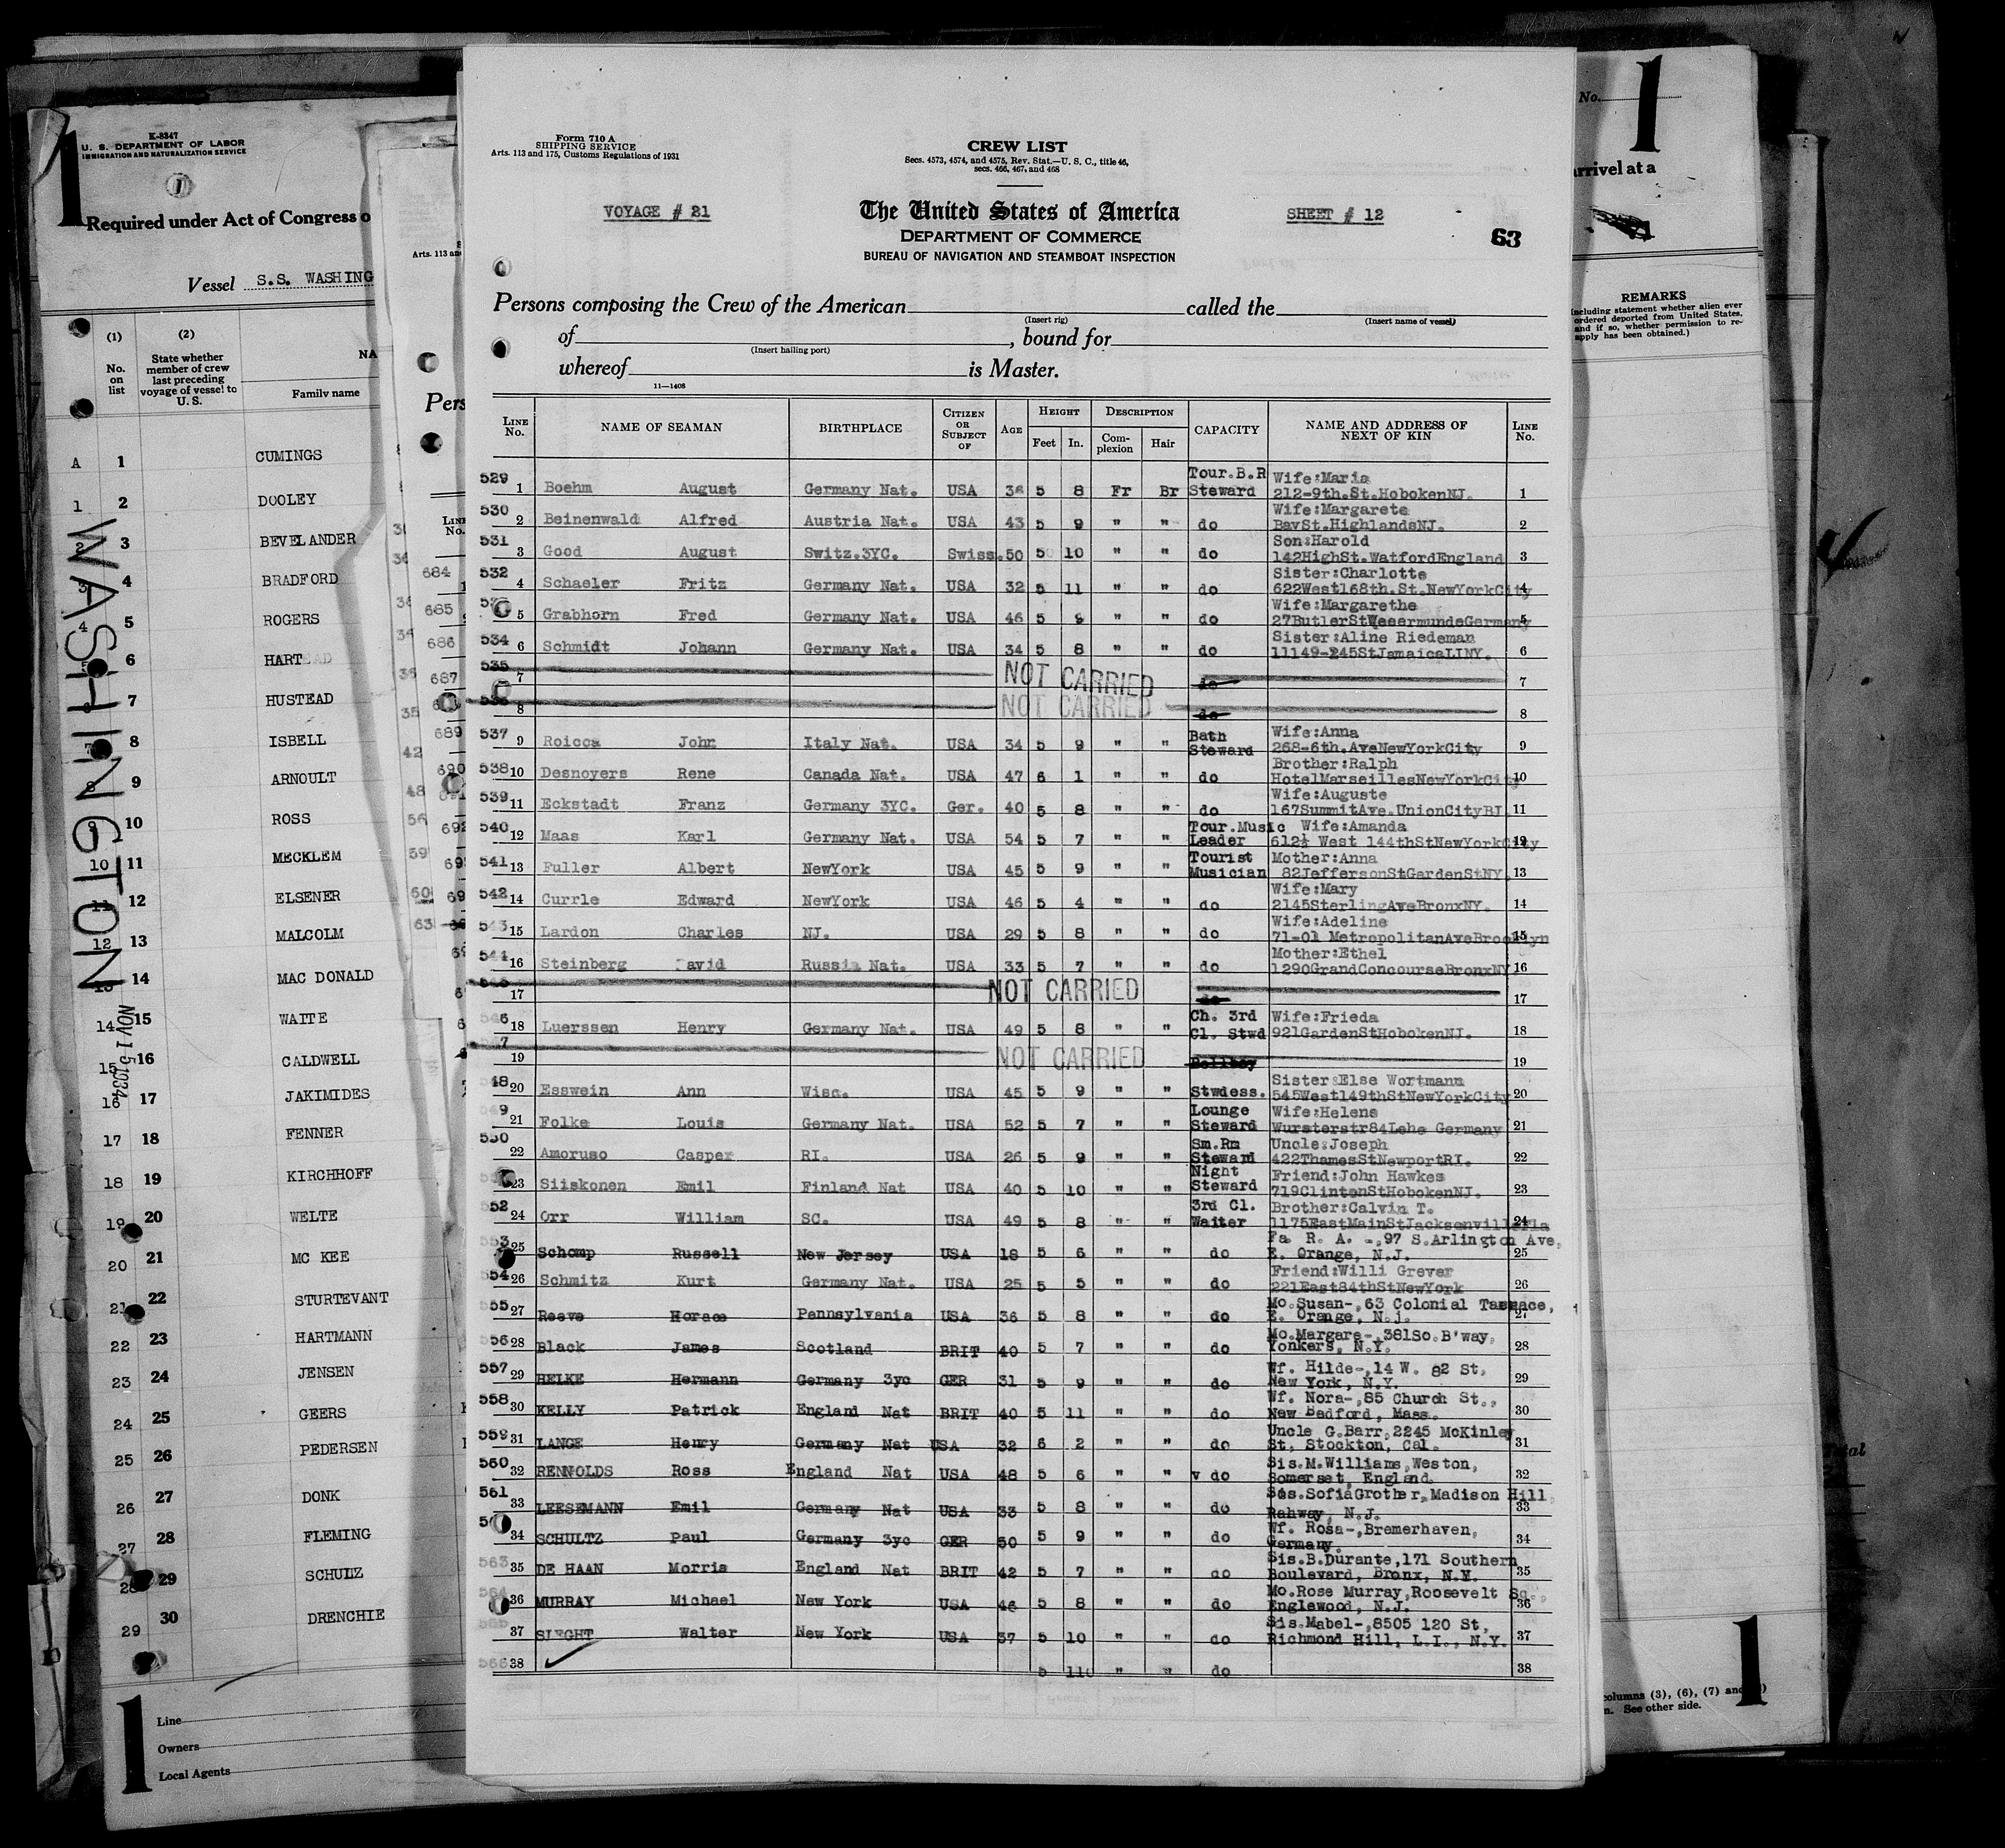 K-8347
U. S. DEPARTMENT OF LABOR
IMMIGRATION AND NATURALIZATION SERVICE
1
Required under Act of Congress o
Vessel S.S. WASHING
(1) (2)
No. on list
State whether member of crew last preceding voyage of vessel to U. S.
NA
Family name
A 1 CUMINGS
1 2 DOOLEY
2 3 BEVELANDER
3 4 BRADFORD
4 5 ROGERS
5 6 HART
6 7 HUSTEAD
7 8 ISBELL
8 9 ARNOULT
9 10 ROSS
10 11 MECKLEM
11 12 ELSENER
12 13 MALCOLM
13 14 MAC DONALD
14 15 WAITE
15 16 CALDWELL
16 17 JAKIMIDES
17 18 FENNER
18 19 KIRCHHOFF
19 20 WELTE
20 21 MC KEE
21 22 STURTEVANT
22 23 HARTMANN
23 24 JENSEN
24 25 GEERS
25 26 PEDERSEN
26 27 DONK
27 28 FLEMING
28 29 SCHULZ
29 30 DRENCHIE
WASHINGTON
NOV 15 1934
1
Line
Owners
Local Agents
Arts. 113 an
Pers
Line No.
684
685
686
687
689
690
Form 710 A
SHIPPING SERVICE
Arts. 113 and 175, Customs Regulations of 1931
CREW LIST
Secs. 4573, 4574, and 4575, Rev. Stat.—U. S. C., title 46,
secs. 466, 467, and 468
VOYAGE # 21
The United States of America
SHEET # 12
DEPARTMENT OF COMMERCE
63
BUREAU OF NAVIGATION AND STEAMBOAT INSPECTION
Persons composing the Crew of the American called the
(Insert rig) (Insert name of vessel)
of , bound for
(Insert hailing port)
whereof is Master.
11—1408
LINE No. NAME OF SEAMAN BIRTHPLACE CITIZEN OR SUBJECT OF AGE HEIGHT Feet In. DESCRIPTION Complexion Hair CAPACITY NAME AND ADDRESS OF NEXT OF KIN LINE No.
529 1 Boehm August Germany Nat. USA 36 5 8 Fr Br Tour.B.R Steward Wife:Maria 212-9th.St.HobokenNJ. 1
530 2 Beinenwald Alfred Austria Nat. USA 43 5 9 " " do Wife:Margarete BaySt.HighlandsNJ. 2
531 3 Good August Switz.3YC. Swiss. 50 5 10 " " do Son:Harold 142HighSt.WatfordEngland 3
532 4 Schaeler Fritz Germany Nat. USA 32 5 11 " " do Sister:Charlotte 622West168th.St.NewYorkCity 4
5 Grabhorn Fred Germany Nat. USA 46 5 9 " " do Wife:Margarethe 27ButlerStWesermundeGermany 5
534 6 Schmidt Johann Germany Nat. USA 34 5 8 " " do Sister:Aline Riedeman 11149-245StJamaicaLINY. 6
535 7 NOT CARRIED do 7
536 8 NOT CARRIED do 8
537 9 Roicca John Italy Nat. USA 34 5 9 " " Bath Steward Wife:Anna 268-6th.AveNewYorkCity 9
538 10 Desnoyers Rene Canada Nat. USA 47 6 1 " " do Brother:Ralph HotelMarseillesNewYorkCity 10
539 11 Eckstadt Franz Germany 3YC. Ger. 40 5 8 " " do Wife:Auguste 167SummitAve.UnionCity 11
540 12 Maas Karl Germany Nat. USA 54 5 7 " " Tour.Music Leader Wife:Amanda 612½ West 144thStNewYorkCity 12
541 13 Fuller Albert NewYork USA 45 5 9 " " Tourist Musician Mother:Anna 82JeffersonStGardenStNY. 13
542 14 Currle Edward NewYork USA 46 5 4 " " do Wife:Mary 2145SterlingAveBronxNY. 14
543 15 Lardon Charles NJ. USA 29 5 8 " " do Wife:Adeline 71-01 MetropolitanAveBrooklyn 15
544 16 Steinberg David Russia Nat. USA 33 5 7 " " do Mother:Ethel 1290GrandConcourseBronxNY 16
17 NOT CARRIED do 17
546 18 Luerssen Henry Germany Nat. USA 49 5 8 " " Ch. 3rd Cl. Stwd Wife:Frieda 921GardenStHobokenNJ. 18
19 NOT CARRIED Bellboy 19
548 20 Esswein Ann Wisc. USA 45 5 9 " " Stwdess. Sister:Else Wortmann 545West149thStNewYorkCity 20
549 21 Folke Louis Germany Nat. USA 52 5 7 " " Lounge Steward Wife:Helene Wursterstr84Lehe Germany 21
550 22 Amoruso Casper RI. USA 26 5 9 " " Sm.Rm Steward Uncle:Joseph 422ThamesStNewportRI. 22
23 Siiskonen Emil Finland Nat USA 40 5 10 " " Night Steward Friend:John Hawkes 719ClintonStHobokenNJ. 23
552 24 Orr William SC. USA 49 5 8 " " 3rd Cl. Waiter Brother:Calvin T. 1175EastMainStJacksonvilleFla 24
553 25 Schomp Russell New Jersey USA 18 5 6 " " do Fa. R. A. -,97 S.Arlington Ave, E. Orange, N.J. 25
554 26 Schmitz Kurt Germany Nat. USA 25 5 5 " " do Friend:Willi Grever 221East84thStNewYork 26
555 27 Reeve Horace Pennsylvania USA 36 5 8 " " do Mo.Susan-,63 Colonial Terrace, E. Orange, N.j. 27
556 28 Black James Scotland BRIT 40 5 7 " " do Mo.Margare-,381So.B'way, Yonkers, N.Y. 28
557 29 HELKE Hermann Germany 3yc GER 31 5 9 " " do Wf. Hilde-,14 W. 82 St, New York, N.Y. 29
558 30 KELLY Patrick England Nat BRIT 40 5 11 " " do Wf. Nora-,85 Church St., New Bedford, Mass. 30
559 31 LANGE Henry Germany Nat USA 32 6 2 " " do Uncle G.Barr,2245 McKinley St, Stockton, Cal. 31
560 32 RENNOLDS Ross England Nat USA 48 5 6 " " v do Sis.M.Williams,Weston, Somerset, England. 32
561 33 LEESEMANN Emil Germany Nat USA 33 5 8 " " do Sis.SofiaGrother,Madison Hill Rahway, N.J. 33
34 SCHULTZ Paul Germany 3yc GER 50 5 9 " " do Wf. Rosa-,Bremerhaven, Germany. 34
563 35 DE HAAN Morris England Nat BRIT 42 5 7 " " do Sis.B.Durante,171 Southern Boulevard, Bronx, N.Y. 35
564 36 MURRAY Michael New York USA 46 5 8 " " do Mo.Rose Murray,Roosevelt Sq., Englewood, N.J. 36
565 37 SLEGHT Walter New York USA 37 5 10 " " do Sis.Mabel-,8505 120 St, Richmond Hill, L.I., N.Y. 37
566 38 5 " " do 38
No.
1
arrival at a
REMARKS
(Including statement whether alien ever
ordered deported from United States,
and if so, whether permission to re-
apply has been obtained.)
columns (3), (6), (7) and
n. See other side.
1